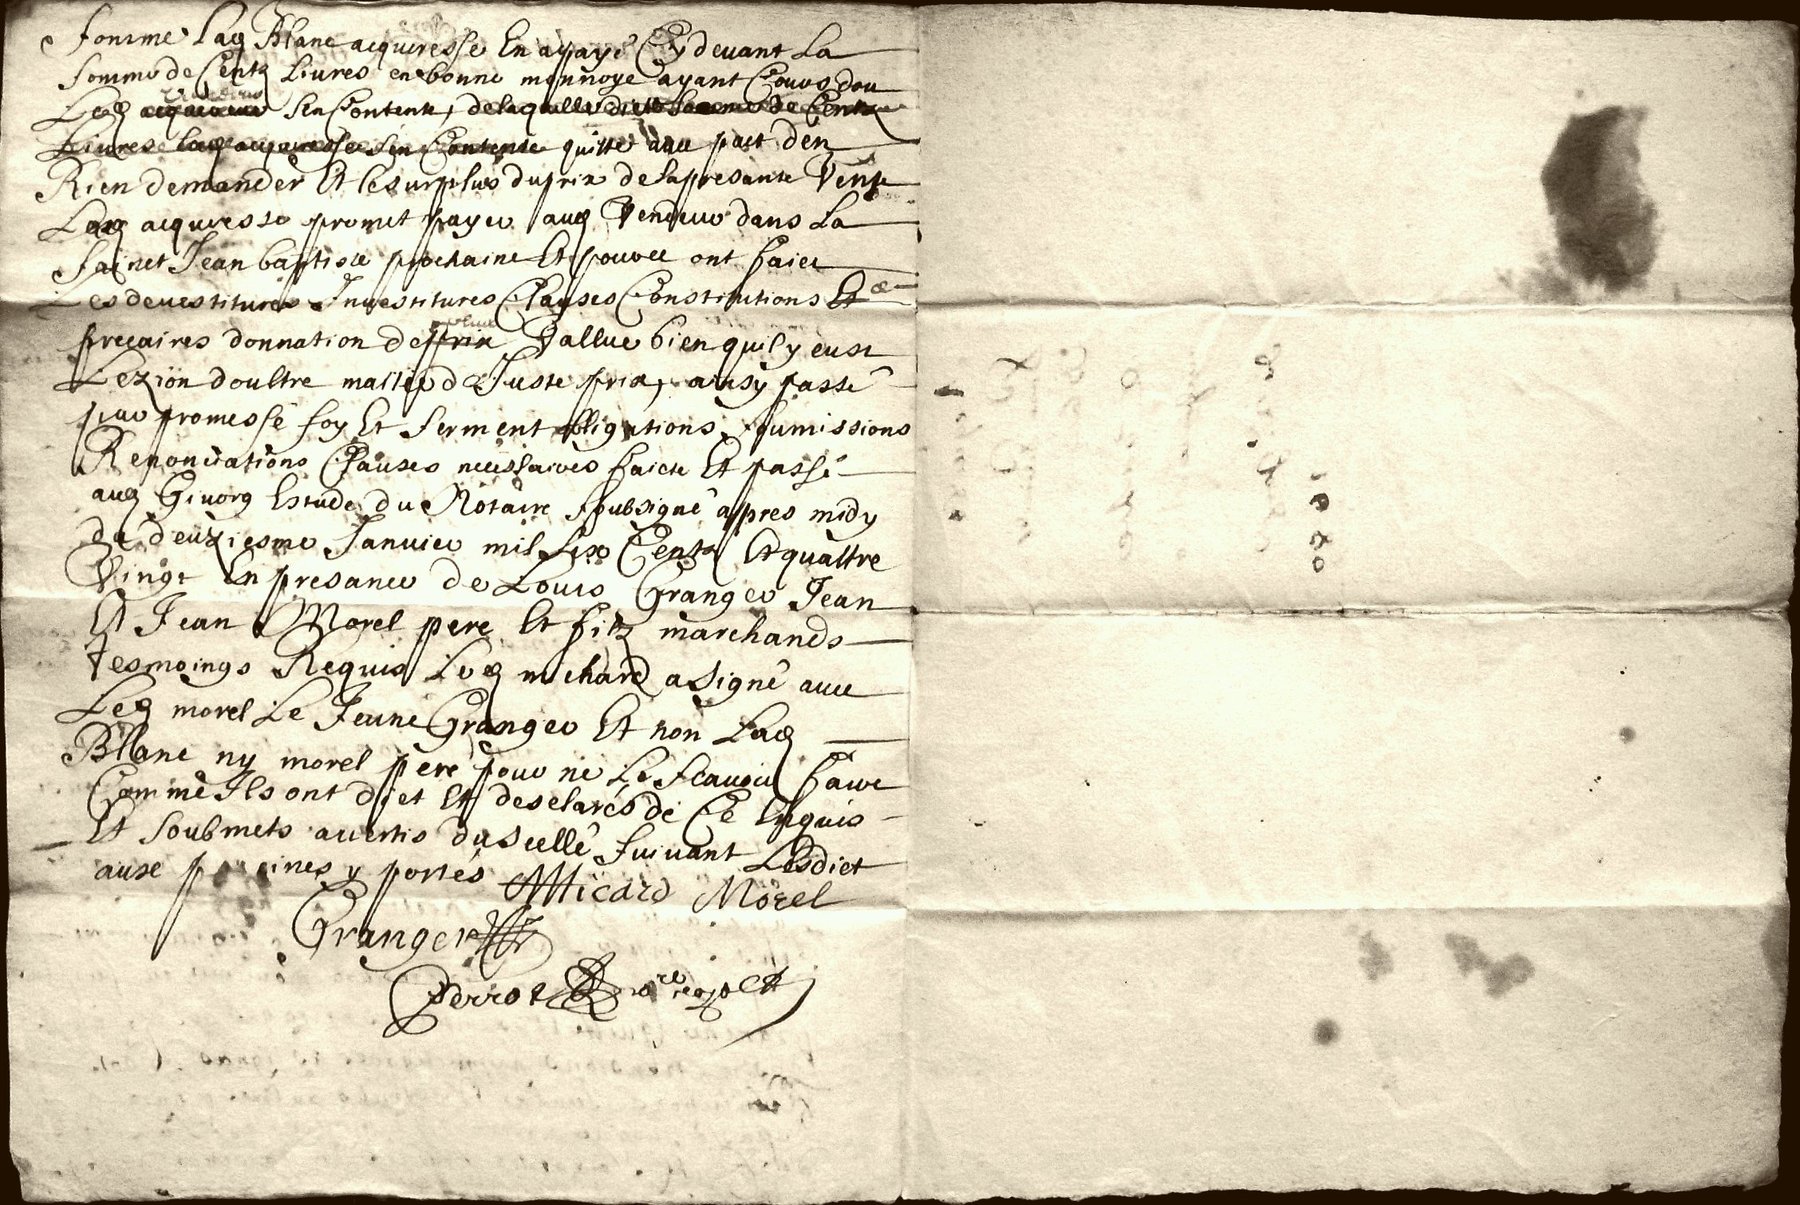 somme lad Blanc acqueresse En a payé Cy devant La
somme de Centz Livres en bonne monnoye ayant Cours dou
Led vendeur sen Contente, de laquelle dicte somme de Centz
Livres lad acqueresse sen Contente quitte avec pact den
Rien demander Et le surplus du prix de la presante Vente
Lad acqueresse promet payer aud Vendeur dans La
sainct Jean baptiste prochaine Et pource ont faict
Les devestitures Investitures Clauses Constitutions Et
precaires donnation de plus Vallue bien quil y eust
Lezion d'oultre moitié de Juste prix, ainsy passé
par promesse foy Et serment obligations, sumissions
Renonciations Clauses necessaires faict Et passé
aud Givorg Estude du Notaire soubsigné apres midy
du deuziesme Janvier mil six Centz Et quattre
Vingt En presance de Louis Granger Jean
Et Jean Morel pere Et filz marchands
tesmoings Requis Led michard a signé avec
Led morel Le Jeune Granger Et non Lad
Blanc ny morel pere pour ne Le scavoir faire
Comme Ils ont dict Et desclarés de Ce Enquis
Et soubmets avertis du scellé suivant Lesdict
aux peines y portés Micard Morel
Granger
Perrot